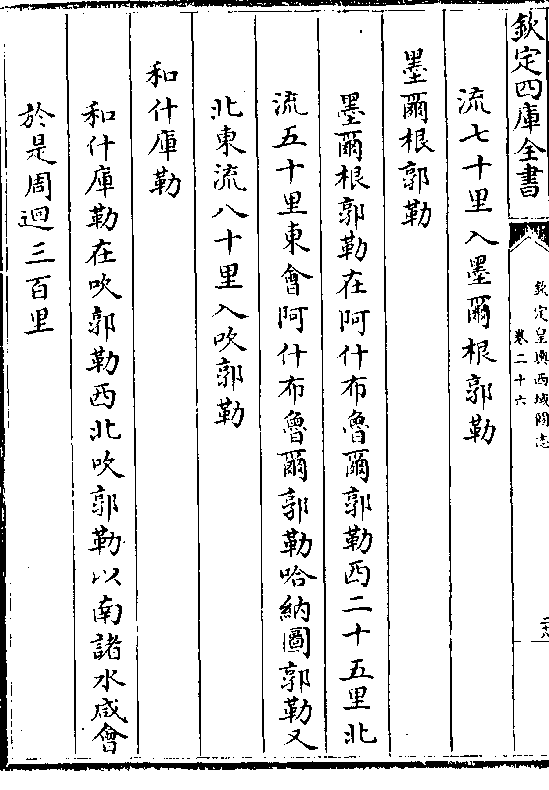 欽定四庫全書
欽定皇輿西域圖志
卷二十六
流七十里入墨爾根郭勒
墨爾根郭勒
墨爾根郭勒在阿什布魯爾郭勒西二十五里北
流五十里東會阿什布魯爾郭勒哈納圖郭勒又
北東流八十里入吹郭勒
和什庫勒
和什庫勒在吹郭勒西北吹郭勒以南諸水咸會
於是周迴三百里